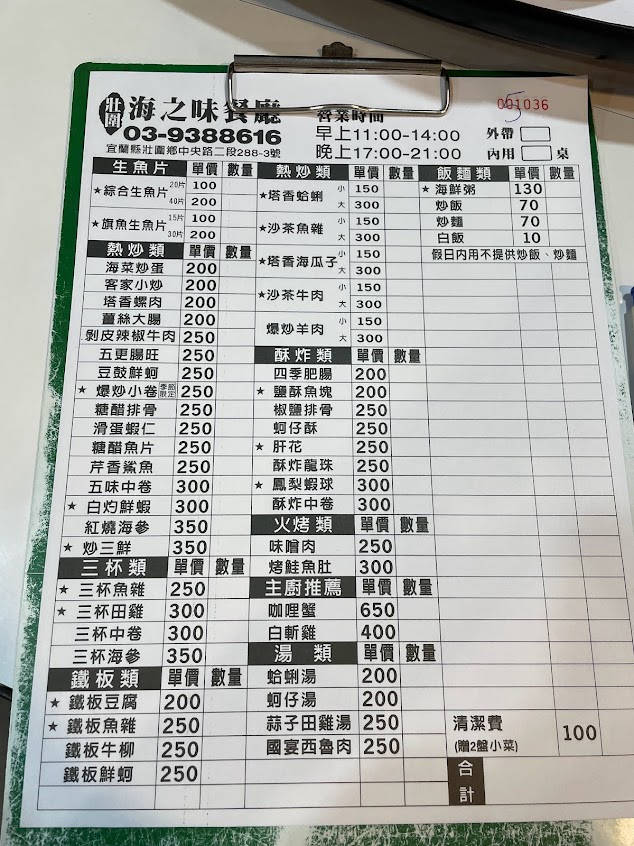 壯圍 海之味餐廳
03-9388616
宜蘭縣壯圍鄉中央路二段288-3號
營業時間
早上11:00-14:00
晚上17:00-21:00
001036
5
外帶
內用 桌
生魚片 單價 數量
★綜合生魚片 20片 100
40片 200
★旗魚生魚片 15片 100
30片 200
熱炒類 單價 數量
海菜炒蛋 200
客家小炒 200
塔香螺肉 200
薑絲大腸 200
剝皮辣椒牛肉 250
五更腸旺 250
豆鼓鮮蚵 250
★ 爆炒小卷 季節限定 250
糖醋排骨 250
滑蛋蝦仁 250
糖醋魚片 250
芹香鯊魚 250
五味中卷 300
★ 白灼鮮蝦 300
紅燒海參 350
★ 炒三鮮 350
三杯類 單價 數量
★ 三杯魚雜 250
★ 三杯田雞 300
三杯中卷 300
三杯海參 350
鐵板類 單價 數量
★ 鐵板豆腐 200
★ 鐵板魚雜 250
鐵板牛柳 250
鐵板鮮蚵 250
熱炒類 單價 數量
★塔香蛤蜊 小 150
大 300
★沙茶魚雜 小 150
大 300
★塔香海瓜子 小 150
大 300
★沙茶牛肉 小 150
大 300
爆炒羊肉 小 150
大 300
酥炸類 單價 數量
四季肥腸 200
★ 鹽酥魚塊 200
椒鹽排骨 250
蚵仔酥 250
★ 肝花 250
酥炸龍珠 250
★ 鳳梨蝦球 300
酥炸中卷 300
火烤類 單價 數量
味噌肉 250
烤鮭魚肚 300
主廚推薦 單價 數量
咖哩蟹 650
白斬雞 400
湯類 單價 數量
蛤蜊湯 200
蚵仔湯 200
蒜子田雞湯 250
國宴西魯肉 250
飯麵類 單價 數量
★ 海鮮粥 130
炒飯 70
炒麵 70
白飯 10
假日內用不提供炒飯、炒麵
清潔費 100
(贈2盤小菜)
合計